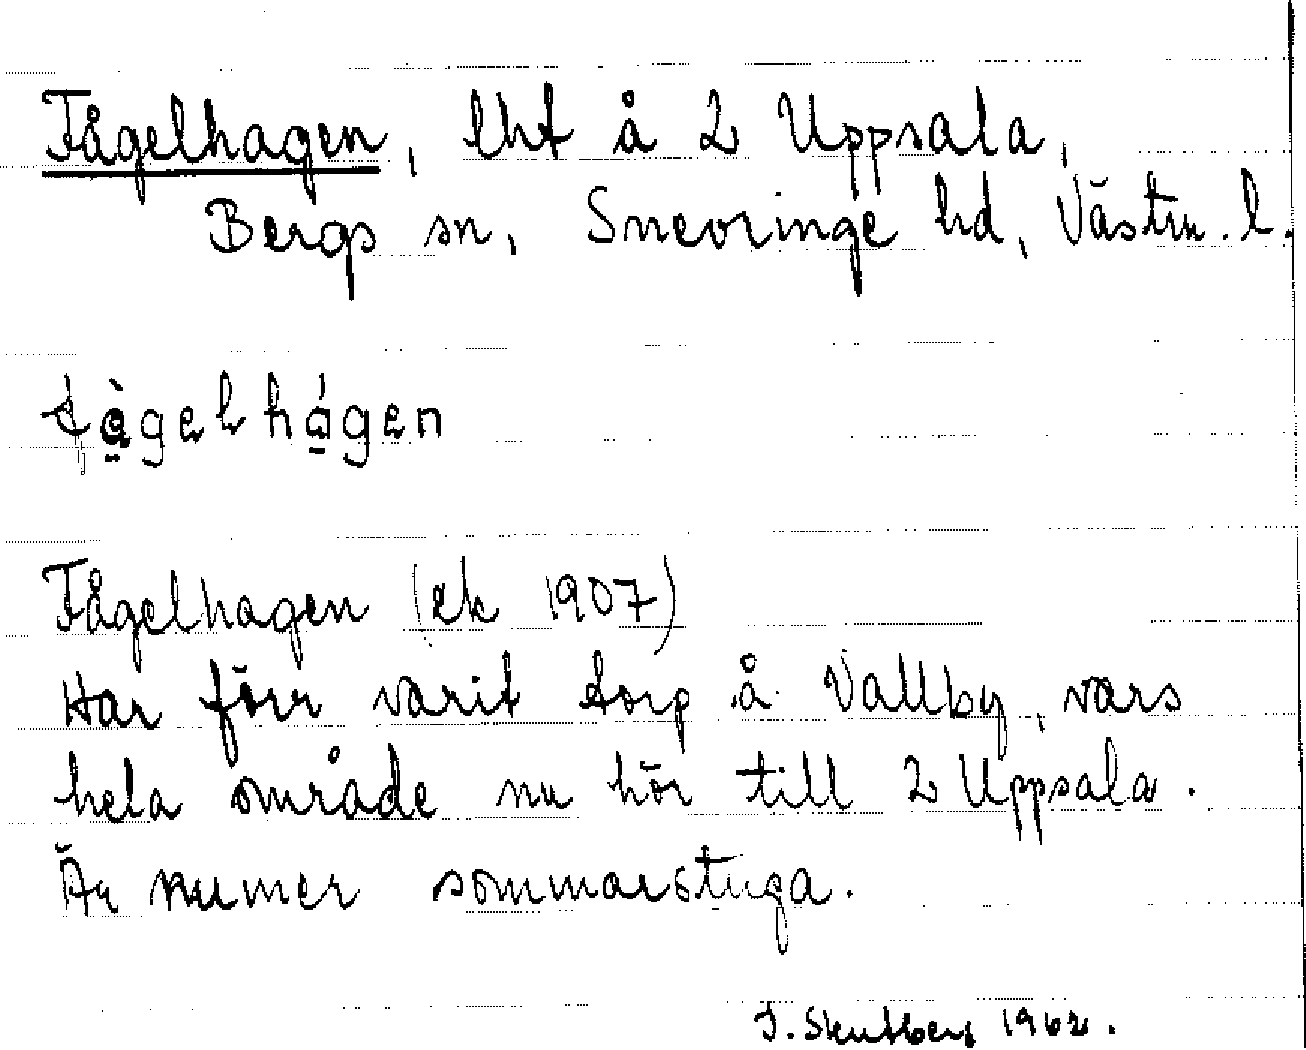 Fågelhagen, lht å 2 Uppsala,
Bergs sn, Snevringe hd, Västm. l.
fågelhagen
Fågelhagen (ek 1907)
Har förr varit torp å Vallby, vars
hela område nu hör till 2 Uppsala.
Är numer sommarstuga.
1962.